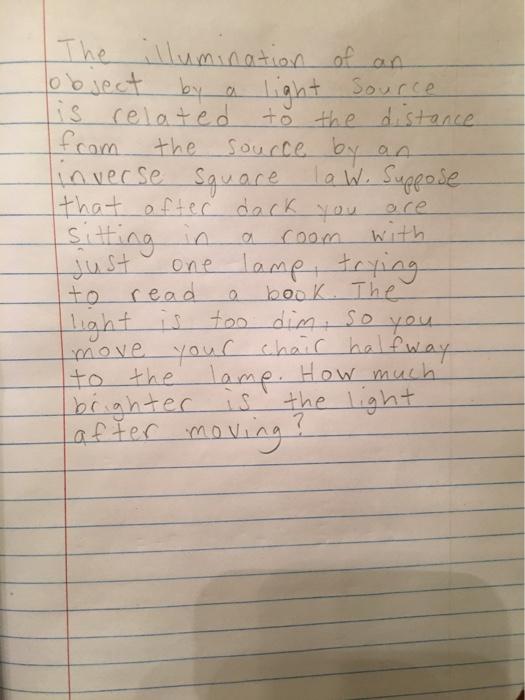 The illumination of an
object by a light source
is related to the distance
from the source by an
inverse square law. Suppose
that after dark you are
sitting in a room with
just one lamp, trying
to read a book. The
light is too dim, so you
move your chair halfway
to the lamp. How much
brighter is the light
after moving?